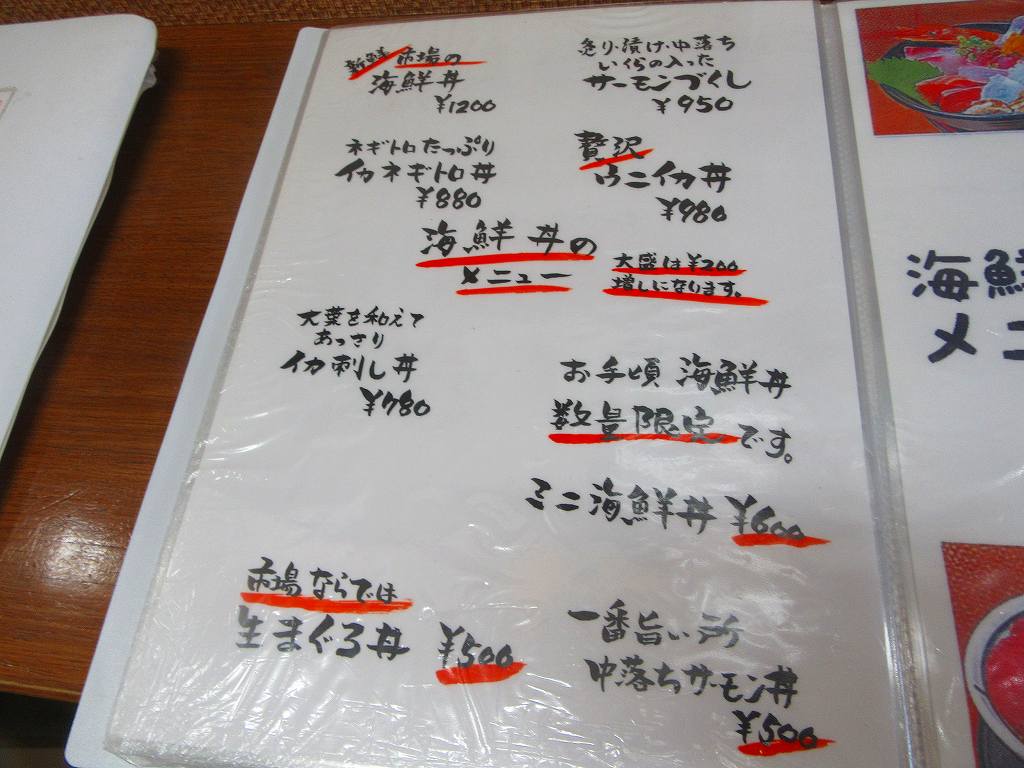 新鮮市場の
海鮮丼
¥1200
炙り・漬け・中落ち
いくらの入った
サーモンづくし
¥950
ネギトロたっぷり
イカネギトロ丼
¥880
贅沢
ウニイカ丼
¥980
海鮮丼の
メニュー
大盛は¥200
増しになります。
大葉を和えて
あっさり
イカ刺し丼
¥780
お手頃 海鮮丼
数量限定です。
ミニ海鮮丼 ¥600
市場ならでは
生まぐろ丼 ¥500
一番旨い所
中落ちサーモン丼
¥500
海鮮
メニ